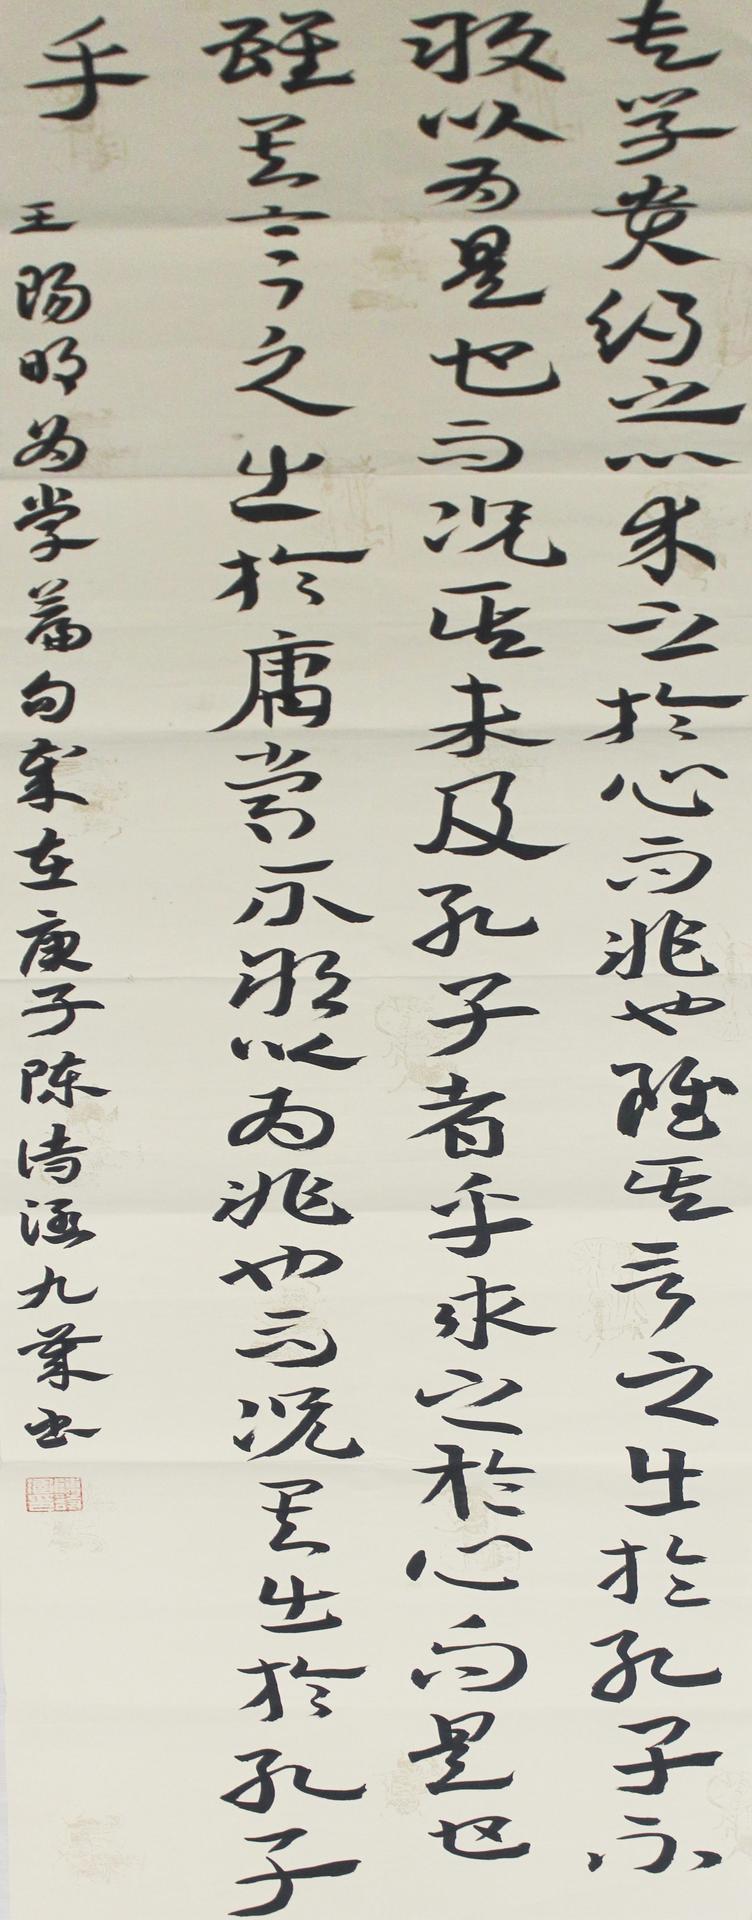 夫学贵得之心求之於心而非也雖其言之出於孔子不
敢以为是也而况其未及孔子者乎求之於心而是也
雖其言之出於庸常不敢以为非也而况其出於孔子
乎 王陽明为学萹句歲在庚子陈诗涵九葉书